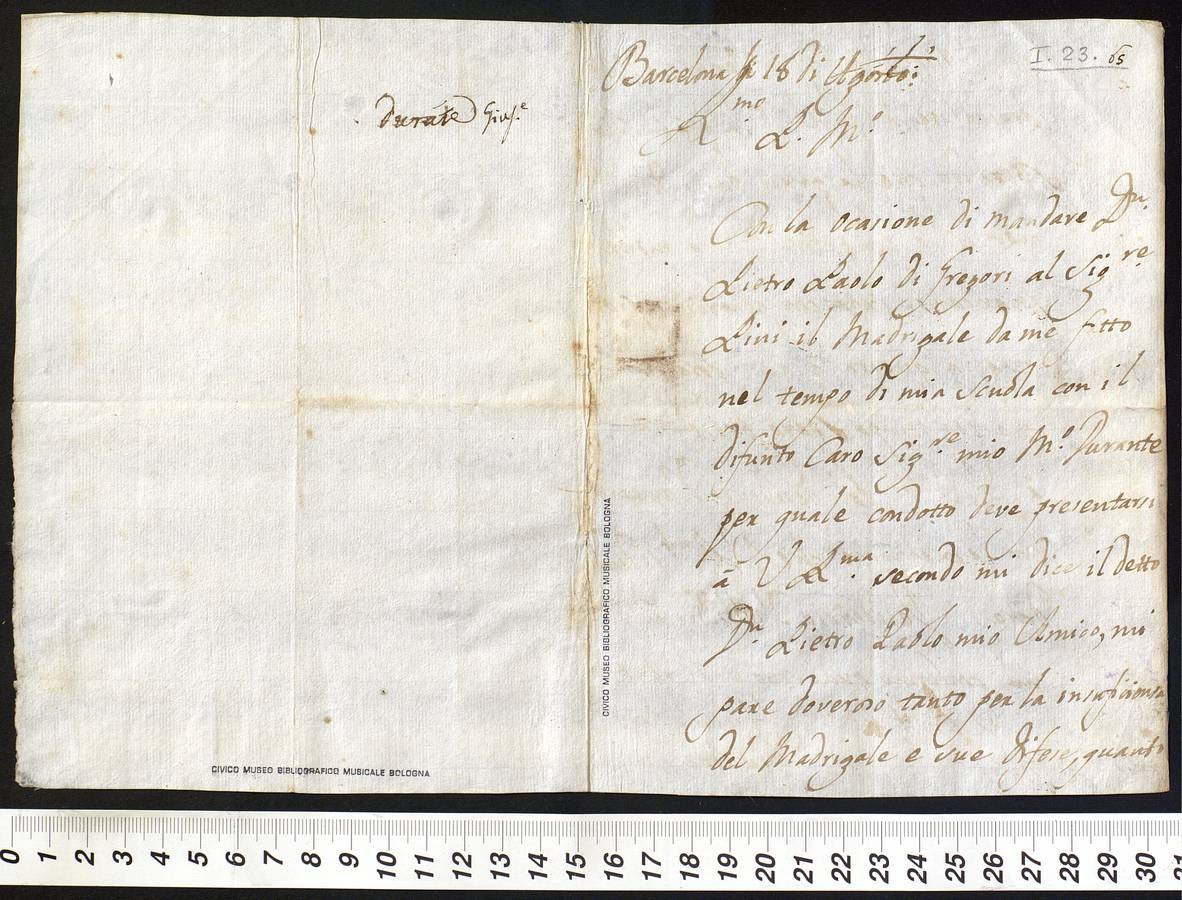 durãte Gius.e
CIVICO MUSEO BIBLIOGRAFICO MUSICALE BOLOGNA
CIVICO MUSEO BIBLIOGRAFICO MUSICALE BOLOGNA
I. 23. 65
Barcelona li 18 di Agosto:
R.mo P. M.o
Con la ocasione di mandare Dn.
Pietro Paolo di Gregori al Sig.re
Pini il Madrigale da me ftto
nel tempo di mia scuola con il
difunto Caro Sig.re mio M.o Durante
per quale condotto deve presentarsi
à V P.ma secondo mi dice il detto
Dn. Pietro Paolo mio Amico, mi
pare doveroso tanto per la insuficiensa
del Madrigale e sue difese, quanto
0 1 2 3 4 5 6 7 8 9 10 11 12 13 14 15 16 17 18 19 20 21 22 23 24 25 26 27 28 29 30 31